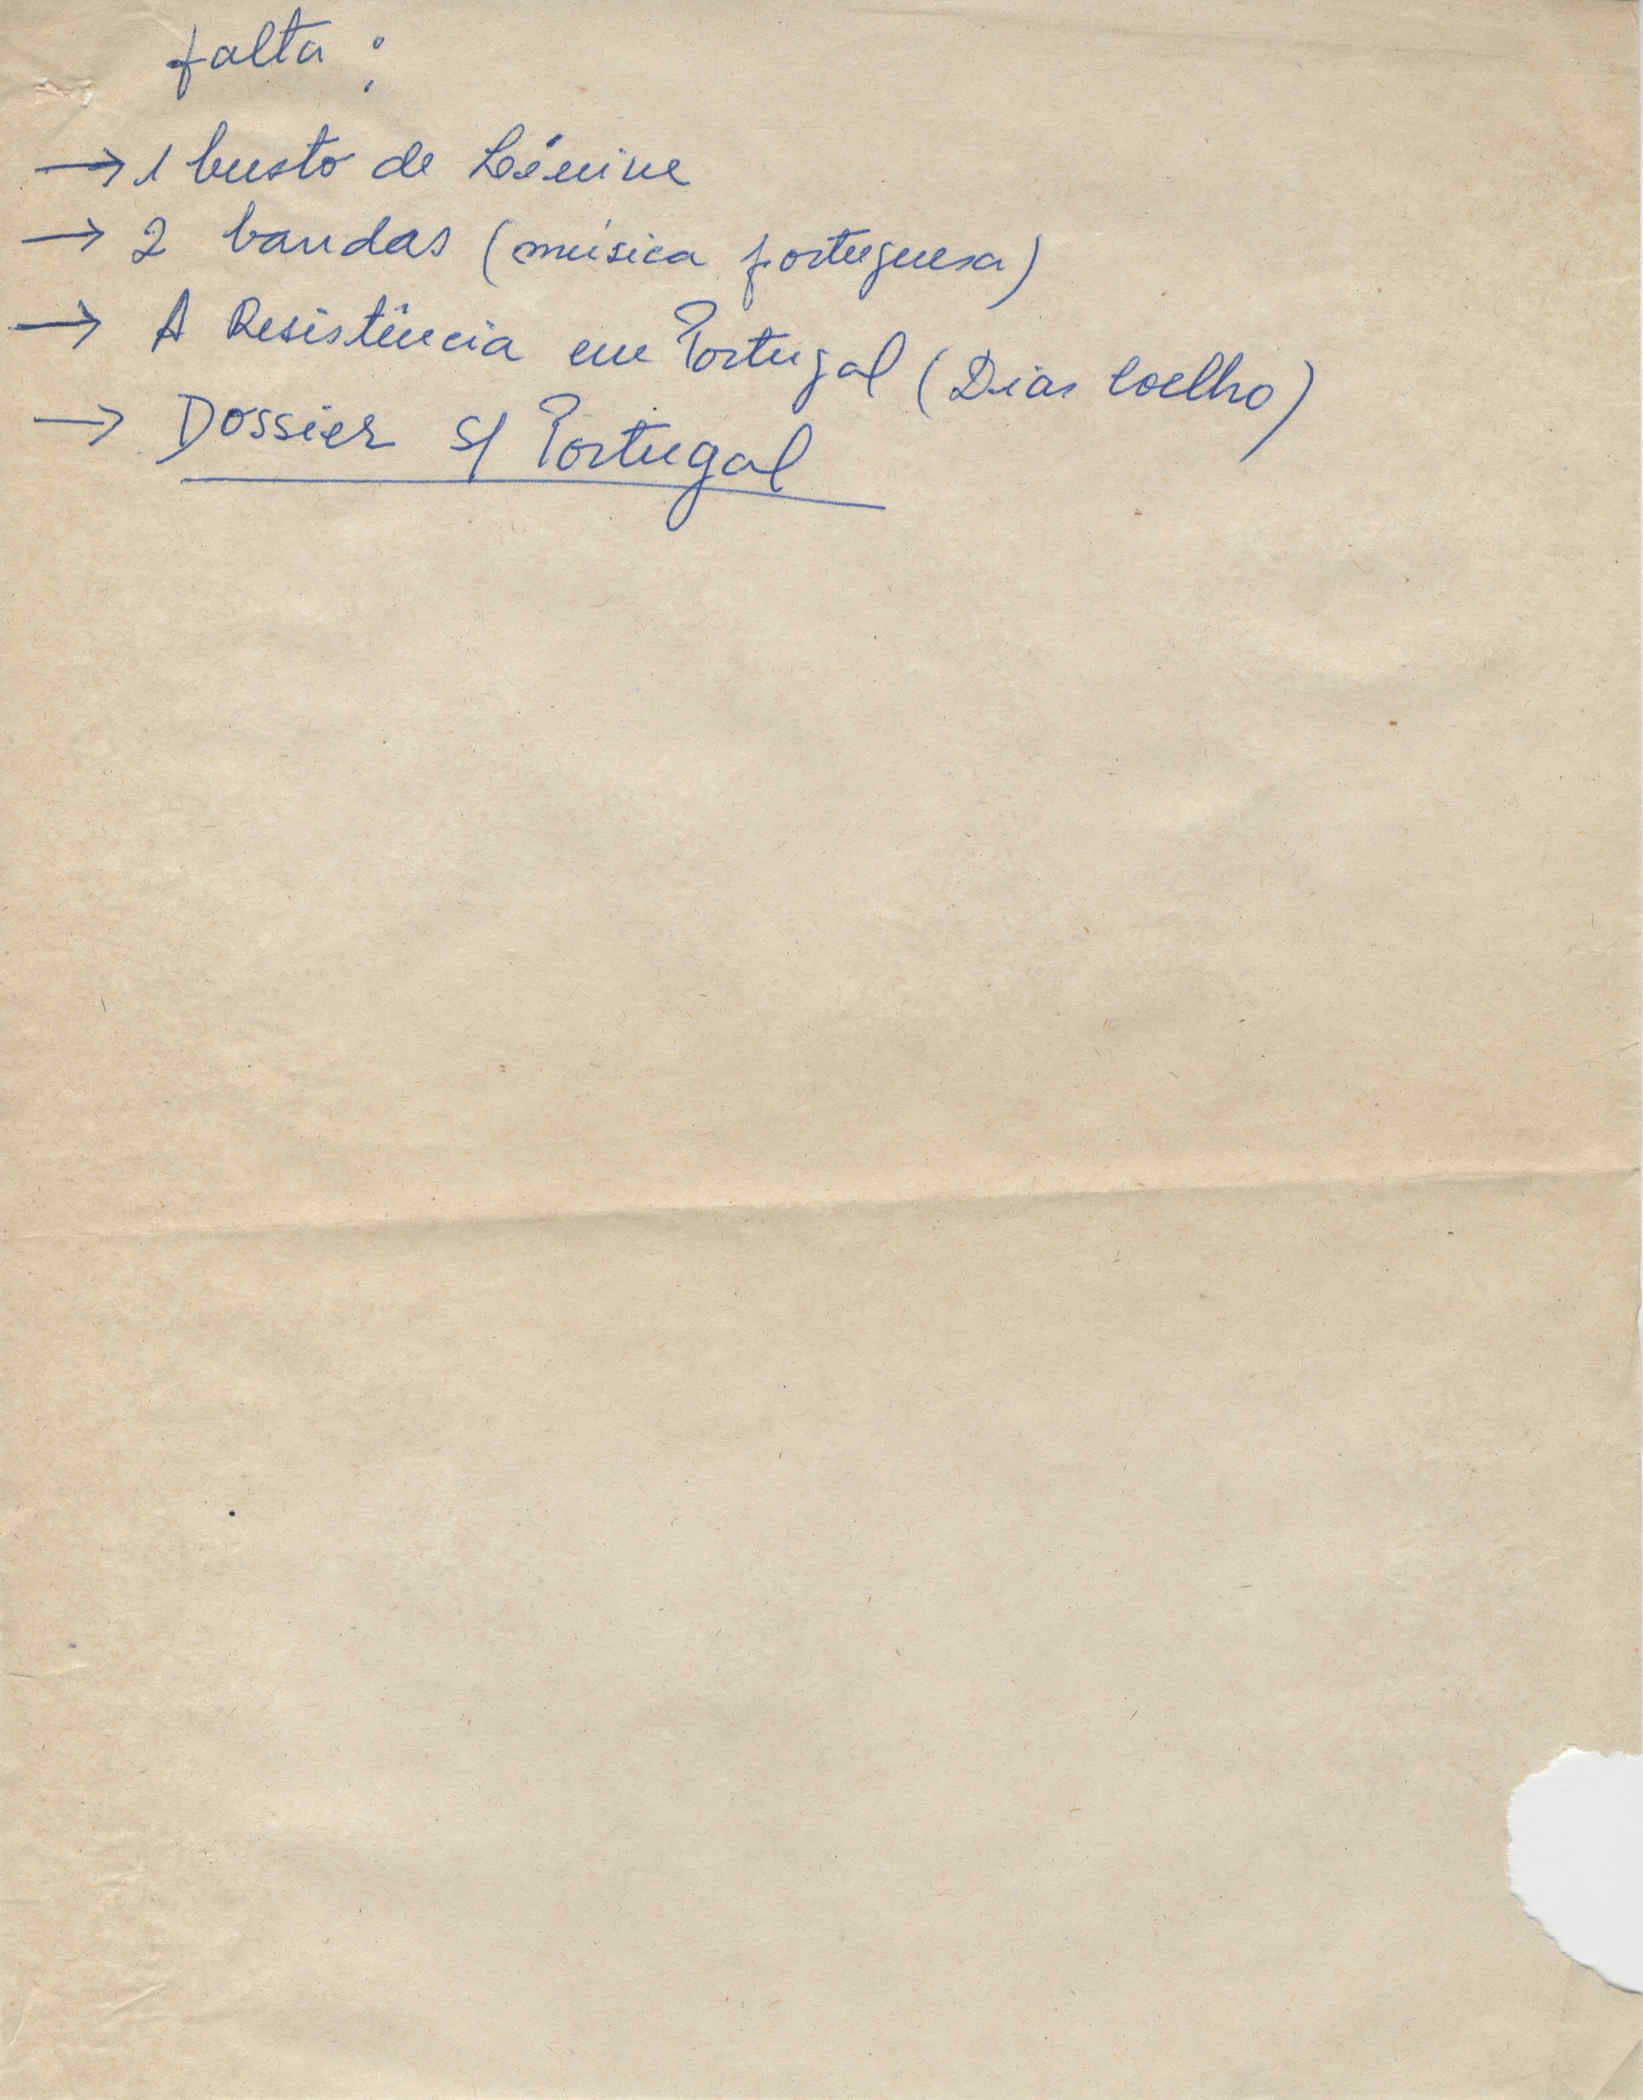 falta :
→ 1 busto de Lénine
→ 2 bandas (música portuguesa)
→ A Resistência em Portugal (Dias Coelho)
→ Dossier s/ Portugal